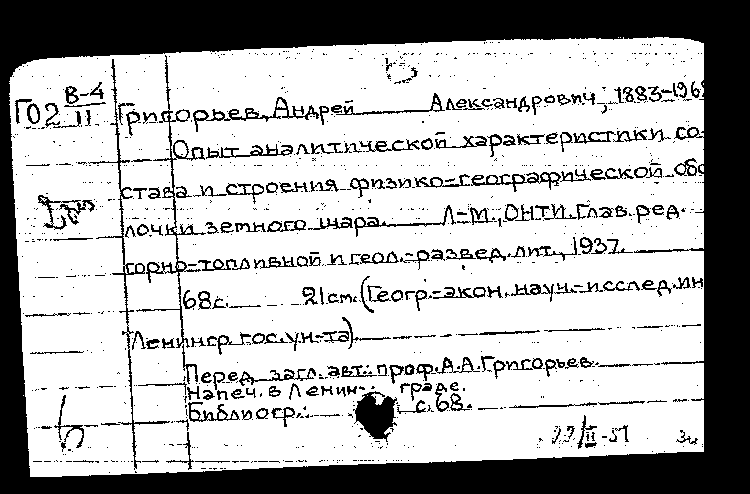 Г02 В-4
II
Григорьев, Андрей Александрович, 1883-196
Опыт аналитической характеристики со-
става и строения физико-географической обо
лочки земного шара. Л-М., ОНТИ. Глав. ред.
горно-топливной и геол.-развед. лит., 1937.
68 с. 21 см. (Геогр.-экон. науч.-исслед. ин
Ленингр. гос. ун-та).
Перед загл. авт.: проф. А.А. Григорьев.
Напеч. в Ленин- граде.
Библиогр.: с. 68.
б
II-51